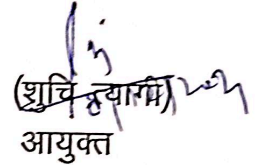 (शुचि त्यागी)
आयुक्त